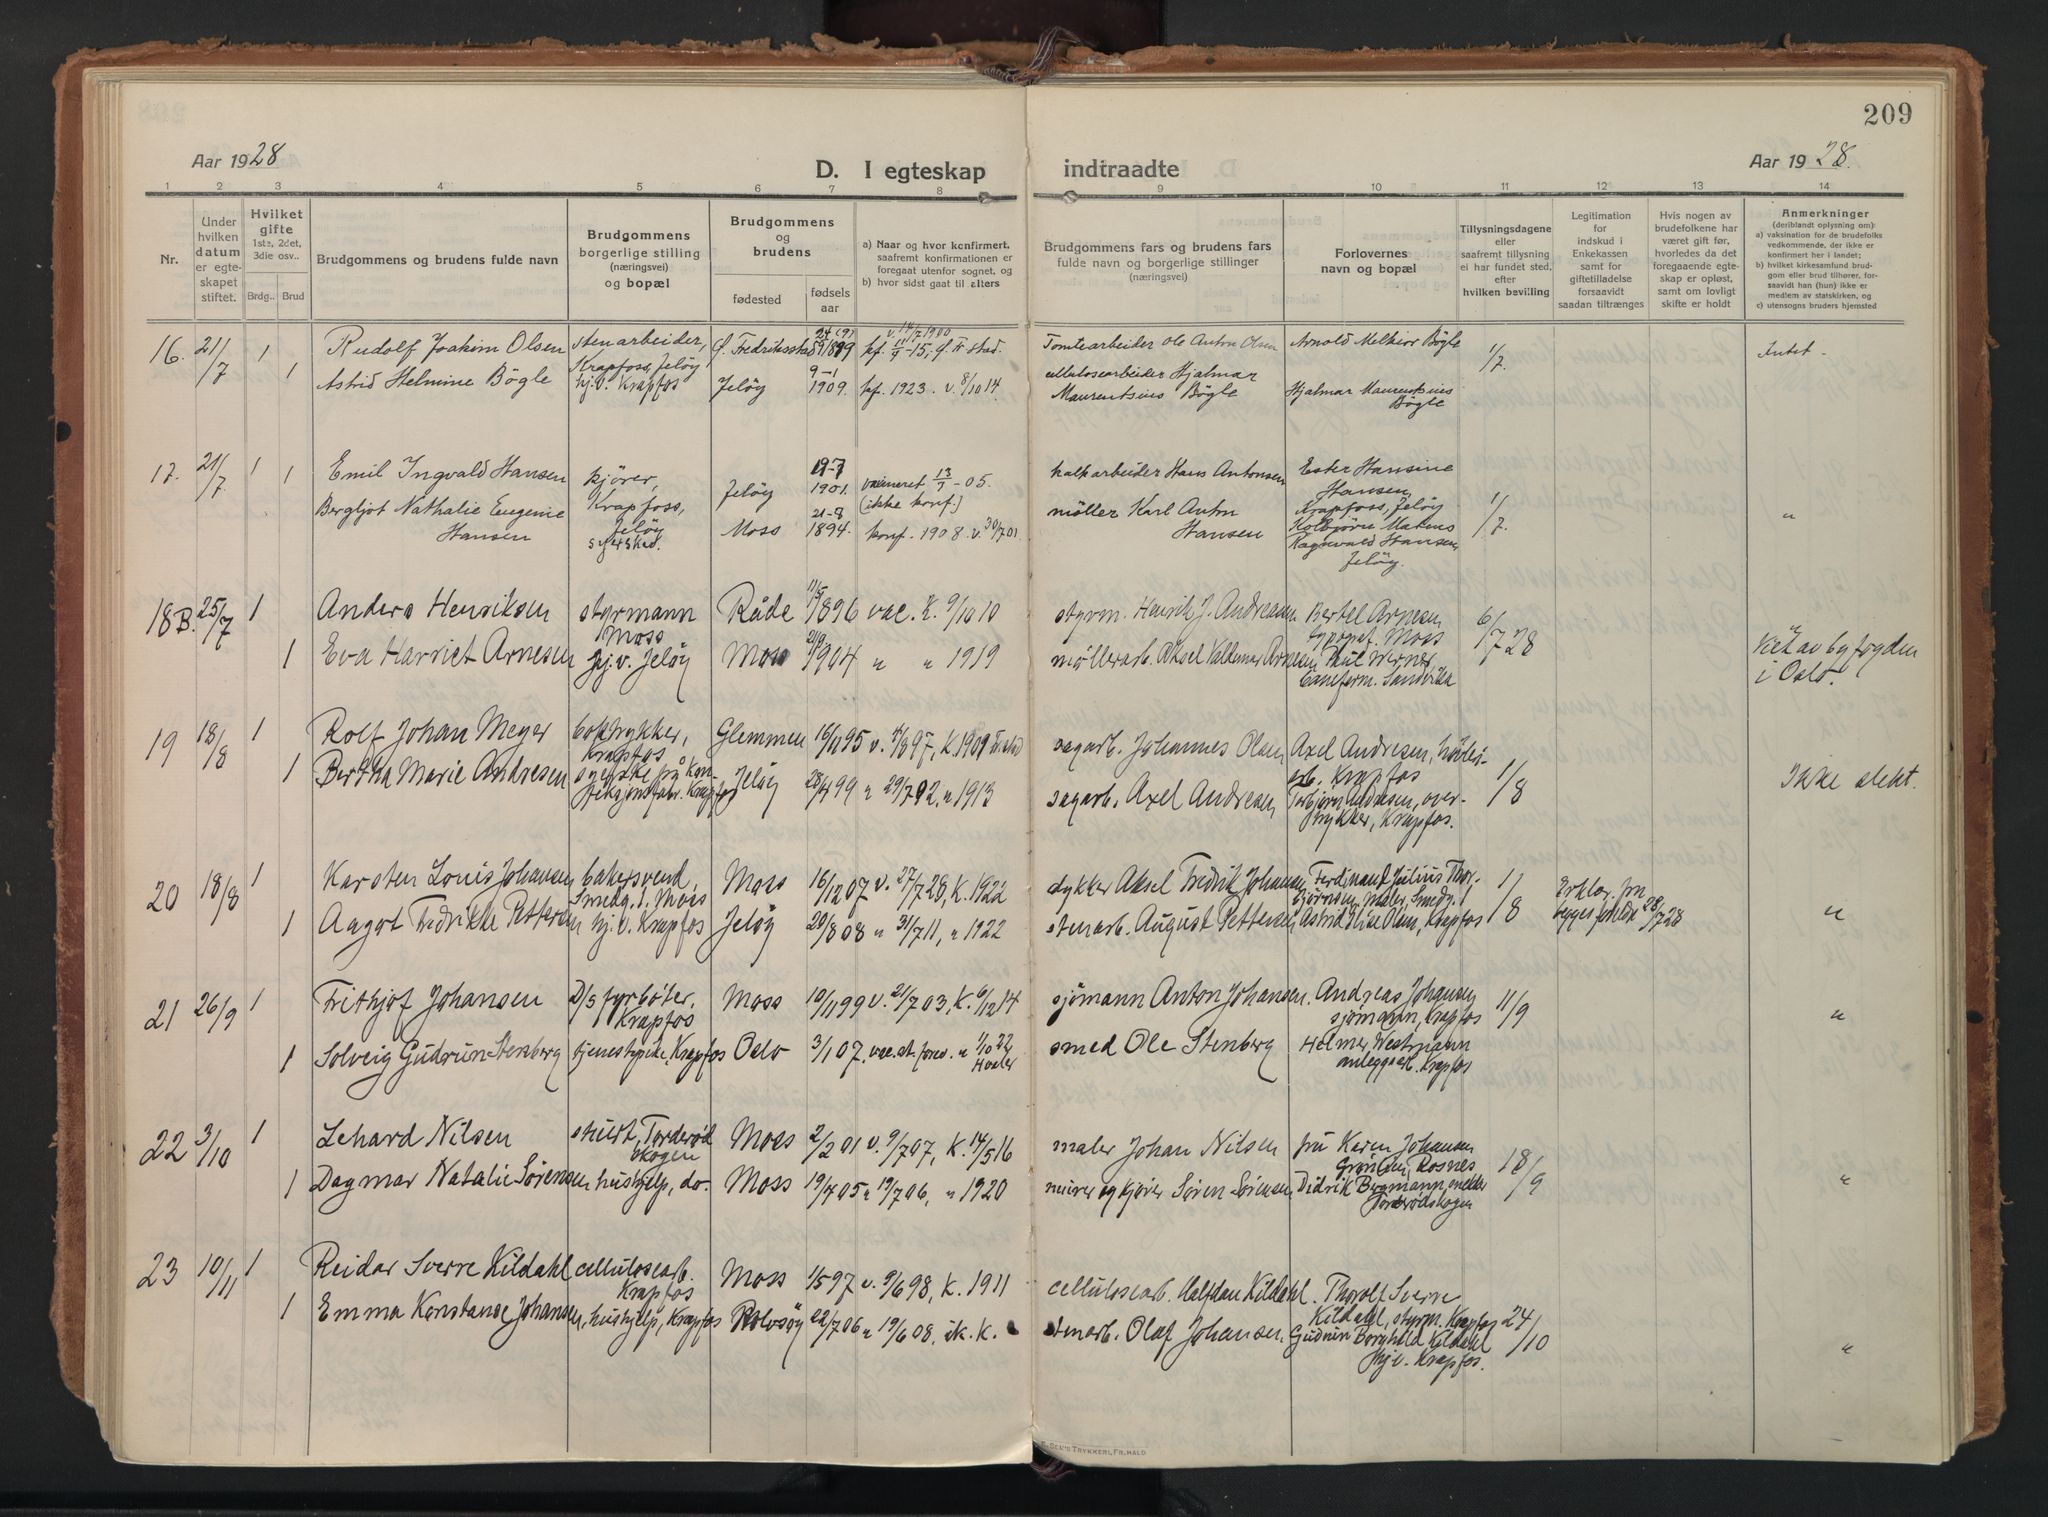 209
Aar 1928
D. I egteskap indtraadte
Aar 1928.
1 2 3 4 5 6 7 8 9 10 11 12 13 14
Nr.
Under hvilken datum er egteskapet stiftet.
Hvilket gifte 1ste, 2det, 3die osv..
Brdg.. Brud
Brudgommens og brudens fulde navn
Brudgommens borgerlige stilling (næringsvei) og bopæl
Brudgommens og brudens
fødested
fødselsaar
a) Naar og hvor konfirmert, saafremt konfirmationen er foregaat utenfor sognet, og
b) hvor sidst gaat til alters
Brudgommens fars og brudens fars fulde navn og borgerlige stillinger (næringsvei)
Forlovernes navn og bopæl
Tillysningsdagene eller saafremt tillysning ei har fundet sted, efter hvilken bevilling
Legitimation for indskud i Enkekassen samt for giftetilladelse forsaavidt saadan tiltrænges
Hvis nogen av brudefolkene har været gift før, hvorledes da det foregaaende egteskap er opløst, samt om lovligt skifte er holdt
Anmerkninger (deriblandt oplysning om):
a) vaksination for de brudefolks vedkommende, der ikke er konfirmert her i landet;
b) hvilket kirkesamfund brudgom eller brud tilhører, forsaavidt han (hun) ikke er medlem av statskirken, og
c) utensogns bruders hjemsted
16. 21/7 1 Rudolf Joakim Olsen stenarbeider, Krapfoss, Jeløy Fredriksstad 1899 Tomtearbeider Ole Anton Olsen Arnold Melkior Bögle 1/7. Intet.
1 Astrid Helmine Bögle hj.v. Krapfos Jeløy 9-1 1909. kf. 1923. v. 8/10 14. cellulosearbeider Hjalmar Maurentsius Bögle Hjalmar Maurentsius Bögle
17. 21/7. 1 1 Emil Ingvald Hansen kjörer, Krapfoss, Jeløy Jeløy 19-7 1901. vaccineret 13/9-05. (ikke konf.) kalkarbeider Hans Antonsen Ester Hansine Hansen, Krapfoss, Jeløy 1/7. "
Bergljot Nathalie Eugenie Hansen Moss 21-8 1894. konf. 1908. v. 30/7 01. möller Karl Anton Hansen Kolbjörn Matens Ragnvald Hansen, Jeløy.
18B. 25/7 1 Anders Henriksen styrmann Moss Råde 11/5 1896 vac. K. 9/10 10 styrm. Henrik J. Andreasen Bertel Arnesen typograf. Moss 6/7 28
1 Eva Harriet Arnesen hj.v. Jeløy Moss 21/9 1904 " " 1919 møllerarb. Aksel Valdemar Arnesen Paul Werner, Sandvika Viet av byfogden i Oslo.
19 18/8 1 Rolf Johan Meyer boktrykker, Krapfos Glemmen 16/11 95 v. 4/9 97, K. 1909 Fr.stad sagarb. Johannes Olsen Axel Andresen, Krapfos 1/8 Ikke slekt.
1 Bertha Marie Andresen syerske på Konfeksjonsfabr. Krapfos Jeløy 28/4 99 " 29/7 02, " 1913 sagarb. Axel Andresen Torbjørn Andresen, overtrykker, Krapfos.
20 18/8 1 Karsten Louis Johansen bakersvend, Smedg. 1, Moss Moss 16/12 07 v. 27/7 28, K. 1922 dykker Aksel Fredrik Johansen Ferdinand Julius Thorbjørnsen, Maler, Smedg. 1 1/8 Erklær. fra begges foreldre 28/7 28 "
1 Aagot Fredrikke Pettersen hj.v. Krapfos Jeløy 20/8 08 " 31/7 11, " 1922 stenarb. August Pettersen Astrid Elise Olsen, Krapfos
21 26/9 1 Frithjof Johansen D/S fyrbøter, Krapfos Moss 10/11 99 v. 21/7 03, K. 6/12 14 sjömann Anton Johansen. Andreas Johansen sjömann, Krapfos 11/9 "
1 Solveig Gudrun Stenberg tjenestepike, Krapfos Oslo 3/1 07, vac. at. fored. " 1/10 22 Hvaler smed Ole Stenberg Helmer Westmann anleggsarb. Krapfos
22 3/10 1 Lehard Nilsen Torderødskogen Moss 2/2 01 v. 9/7 07, K. 14/5 16 maler Johan Nilsen fru Karen Johansen Rosnes 18/9 "
1 Dagmar Natalie Sørensen, hushjelp, do. Moss 19/4 05 " 19/7 06, " 1920 murer og kjører Søren Sørensen Didrik Bergmann, snekker Torderødskogen
23 10/11 1 Reidar Sverre Kildahl cellulosearb. Krapfos Moss 1/5 97 v. 9/6 98, K. 1911 cellulosearb. Halfdan Kildahl. Thorolf Sverre Kildahl, styrm. Krapfos 24/10 "
1 Emma Konstanse Johansen, hushjelp, Krapfos Rolvsøy 22/7 06 " 19/6 08, ik. K. stenarb. Olaf Johansen. Gudrun Borghild Kildahl Hj.v. Krapfos.
E. SEM'S TRYKKERI, FR.HALD